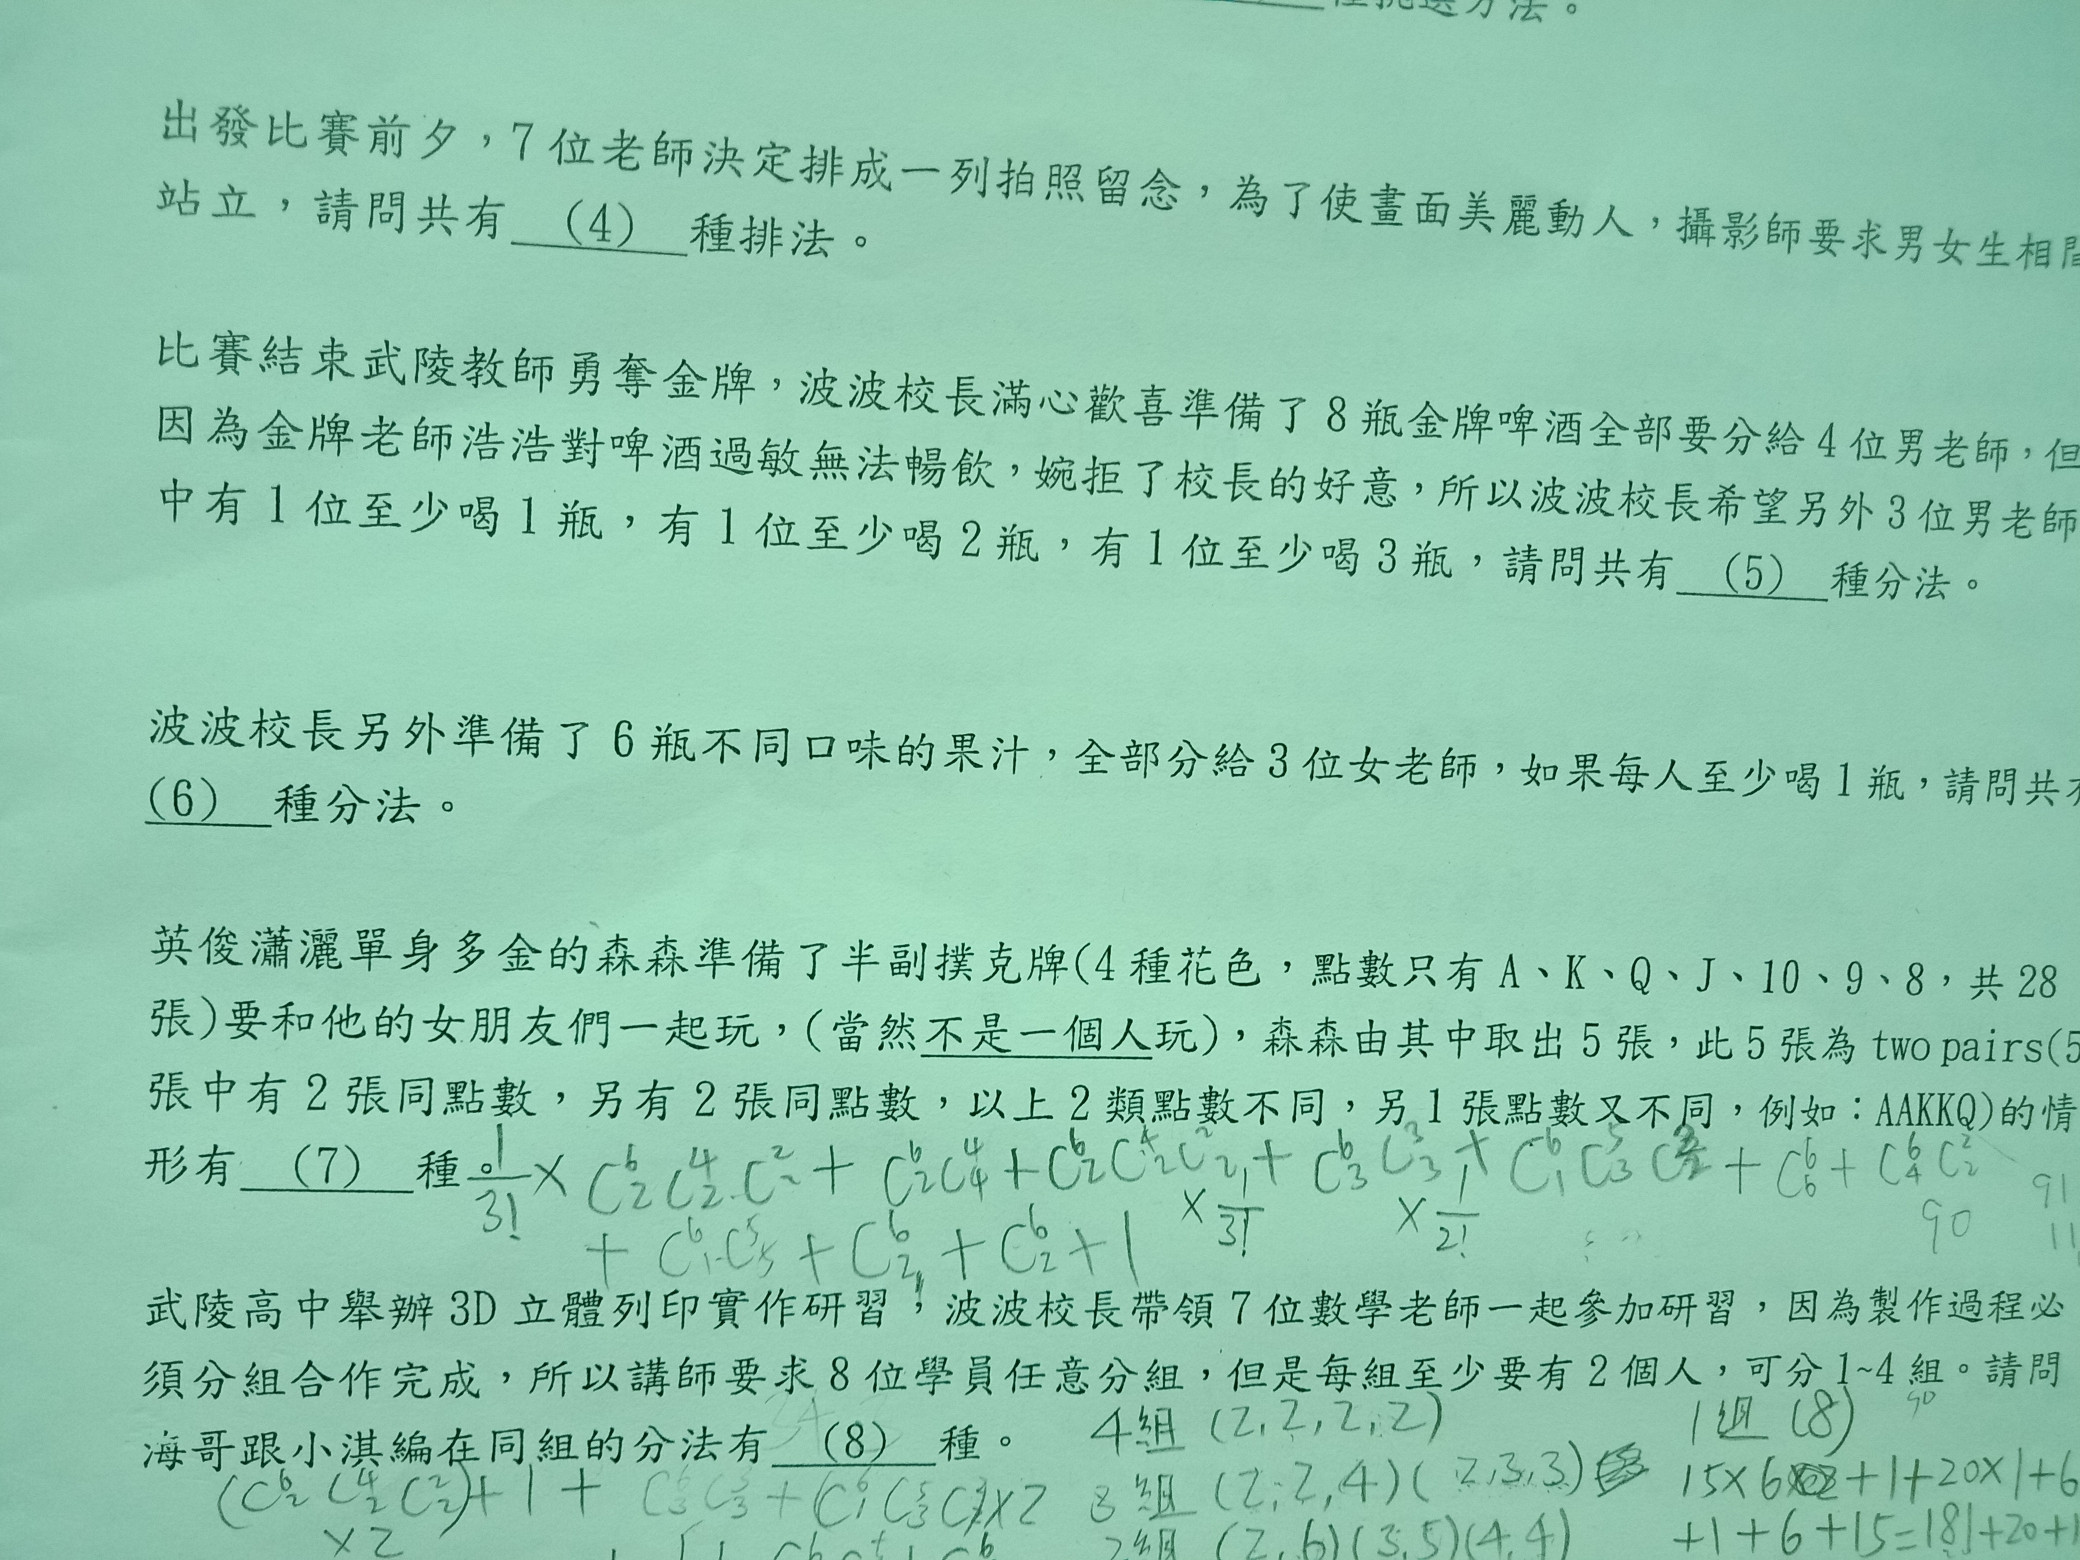 種挑選方法。
出發比賽前夕，7位老師決定排成一列拍照留念，為了使畫面美麗動人，攝影師要求男女生相間
站立，請問共有 (4) 種排法。
比賽結束武陵教師勇奪金牌，波波校長滿心歡喜準備了8瓶金牌啤酒全部要分給4位男老師，但
因為金牌老師浩浩對啤酒過敏無法暢飲，婉拒了校長的好意，所以波波校長希望另外3位男老師
中有1位至少喝1瓶，有1位至少喝2瓶，有1位至少喝3瓶，請問共有 (5) 種分法。
波波校長另外準備了6瓶不同口味的果汁，全部分給3位女老師，如果每人至少喝1瓶，請問共有
(6) 種分法。
英俊瀟灑單身多金的森森準備了半副撲克牌(4種花色，點數只有A、K、Q、J、10、9、8，共28
張)要和他的女朋友們一起玩，(當然不是一個人玩)，森森由其中取出5張，此5張為two pairs(5
張中有2張同點數，另有2張同點數，以上2類點數不同，另1張點數又不同，例如：AAKKQ)的情
形有 (7) 種。
武陵高中舉辦3D立體列印實作研習，波波校長帶領7位數學老師一起參加研習，因為製作過程必
須分組合作完成，所以講師要求8位學員任意分組，但是每組至少要有2個人，可分1~4組。請問
海哥跟小淇編在同組的分法有 (8) 種。
4組 (2,2,2,2) 1組 (8)
3組 (2,2,4)(2,3,3)
2組 (2,6)(3,5)(4,4)